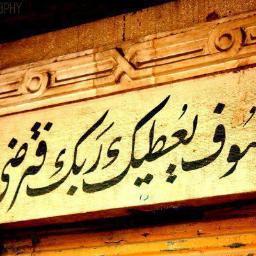 PHY
سوف يُعطيك رَبك فترضى